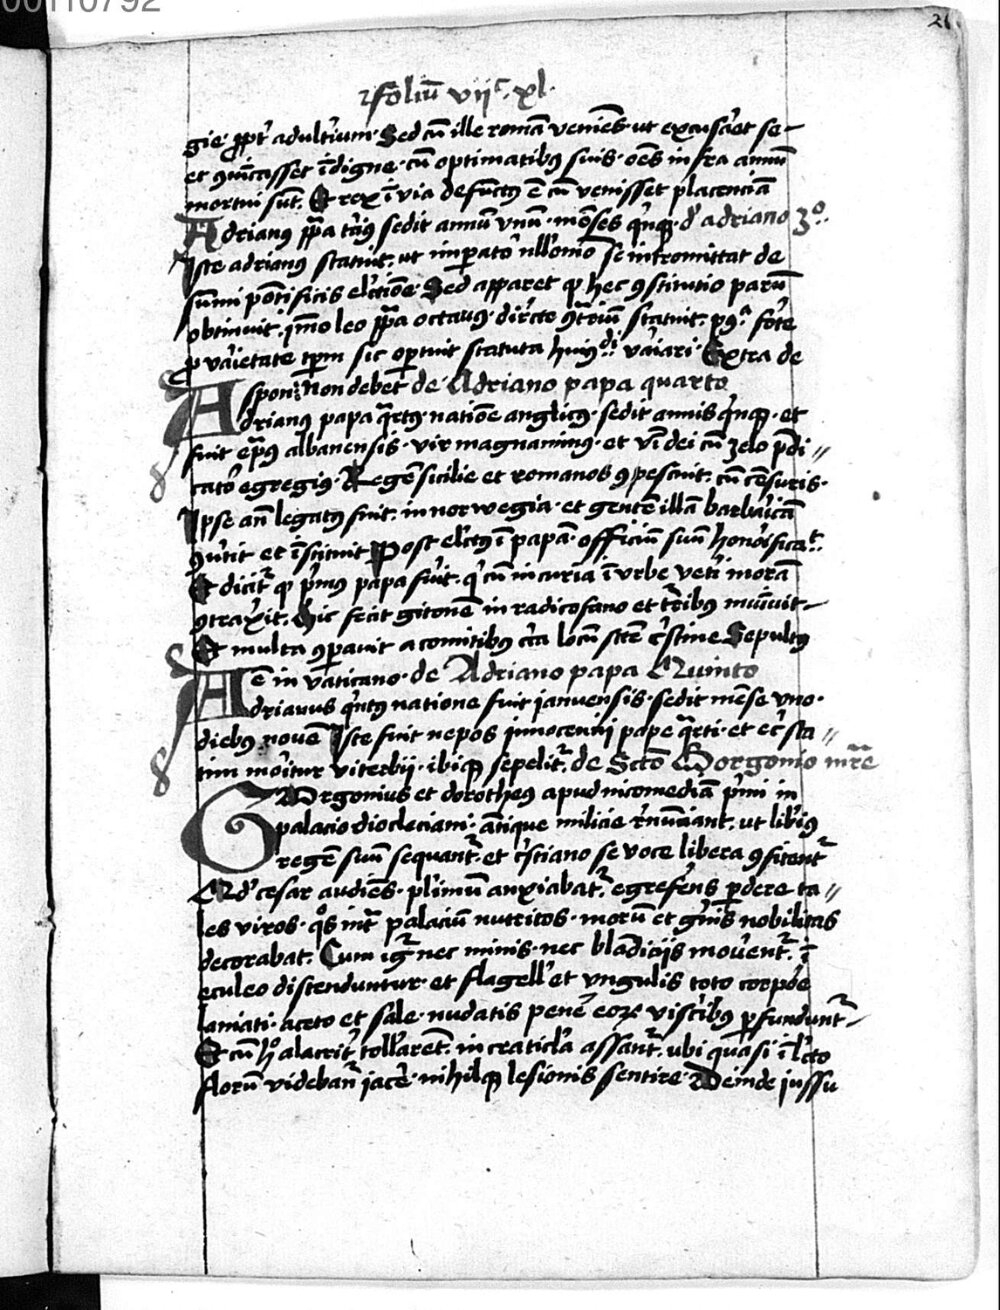 00110792
21
folium vijc xl.
gie ppt adultium. Sed cu ille roma venies ut excusaret se
et comunicasset indigne cu optimatibus suis oes infra annu
mortui sut. Et rex i via defuctus e cu venisset placencia
Adrianus ppa tcius sedit annu vnu menses quinque. de adriano 3o.
Iste adrianus statuit ut imperator nullomo se intromittat de
summi pontificis electione. Sed apparet q hec constitutio paru
obtinuit. ymo leo ppa octavus directe contrariu statuit. forte
p varietate tpm sic oportuit statuta huiusmodi variari. Extra de
spon: Non debet de Adriano papa quarto
Adrianus papa qrtus natione anglicus sedit annis quinque et
fuit epus albanensis vir magnanimus et verbi dei cu zelo predi
cator egregius. Rege sicilie et romanos compescuit cu censuris.
Ipse an legatus fuit in norwegia et gente illa barbarica
convertit et instituit. Post electus i papa officiu suu honorificat.
Et dicit q primus papa fuit q cu in curia i urbe veteri mora
contraxit. Hic fecit gitone in radicofano et turribus munivit
Et multa comparavit a comitibus circa locu sce cristine. Sepultus
e in vaticano. de Adriano papa Quinto
Adrianus quintus natione fuit januensis sedit mense uno.
diebus novem. Iste fuit nepos innocentii pape qrti. et ecia sta
tim moritur viterbii ibique sepelitur. de Scto Gorgonio mre
GOrgonius et dorotheus apud nicomedia primi in
palacio diocleciani antique milicie renunciant. ut liberius
regem suu sequantur et cristiano se voce libera confitentur
Quod cesar audiens plurimum anxiabatur. egre ferens perdere ta
les viros quos inter palaciu nutritos moru et generis nobilitas
decorabat. Cum igitur nec minis nec blandiciis moventur. i
eculeo distenduntur et flagellis et ungulis toto corpore
laniati. aceto et sale nudatis pene eorum visceribus perfunduntur
Et cu hoc alacriter tollerarent. in craticula assantur ubi quasi i lecto
florum videbantur jacere nihilque lesionis sentire. Deinde jussu